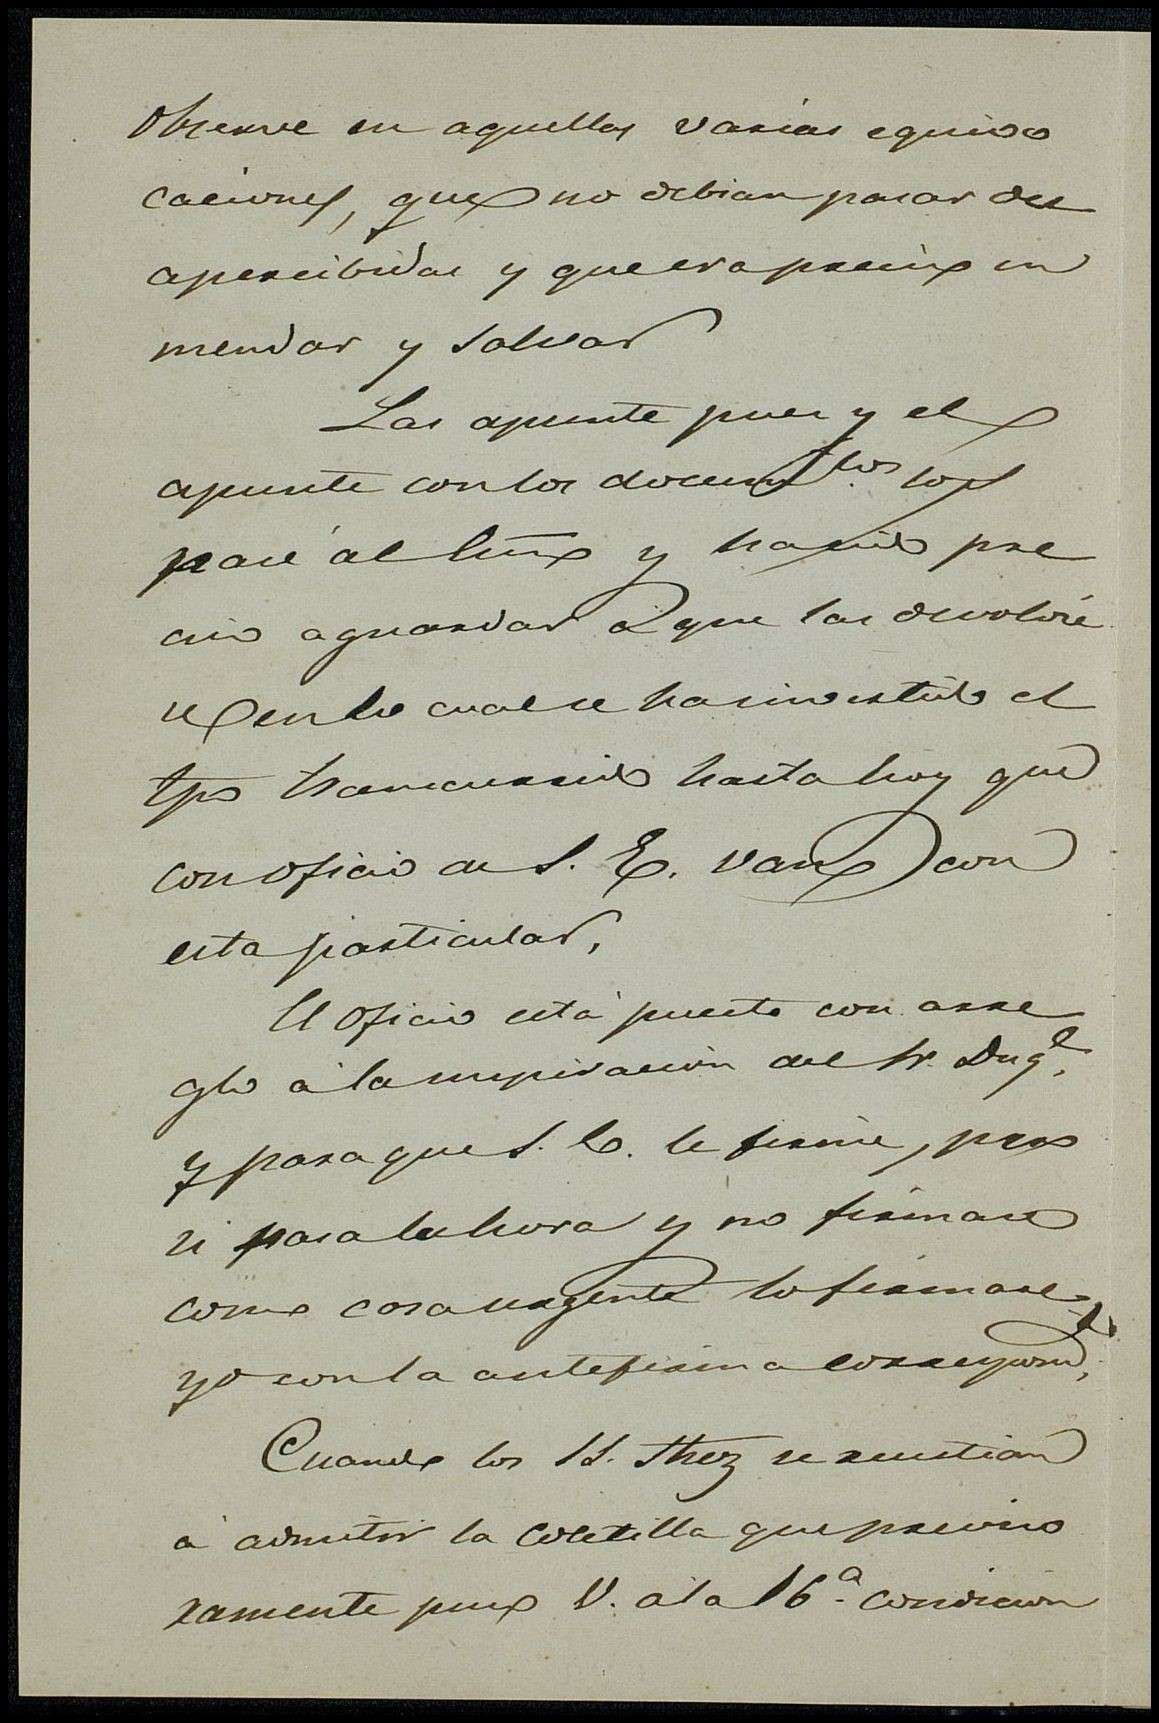 Observé en aquellas varias equivo
caciones, que no debian pasar des
apercibidas y que era preciso en
mendar y salvar
Las apunté pues y el
apunte con los docum.tos los
pasé al Exmo y ha sido pre
ciso aguardar à que las devolvie
se en lo cual se ha invertido el
tpo transcurrido hasta hoy que
con oficio de S. E. van con
esta particular,
El oficio está puesto con arre
glo à la inspiracion del Sr. Duq.e,
y para que S. E. le firme, pero
si pasa la hora y no firmase
como cosa urgente lo firmaré
yo con la antefirma correspond.te,
Cuando los SS. Shez se resistian
à admitir la coletilla que previso
ramente puso V. à la 16.a condicion